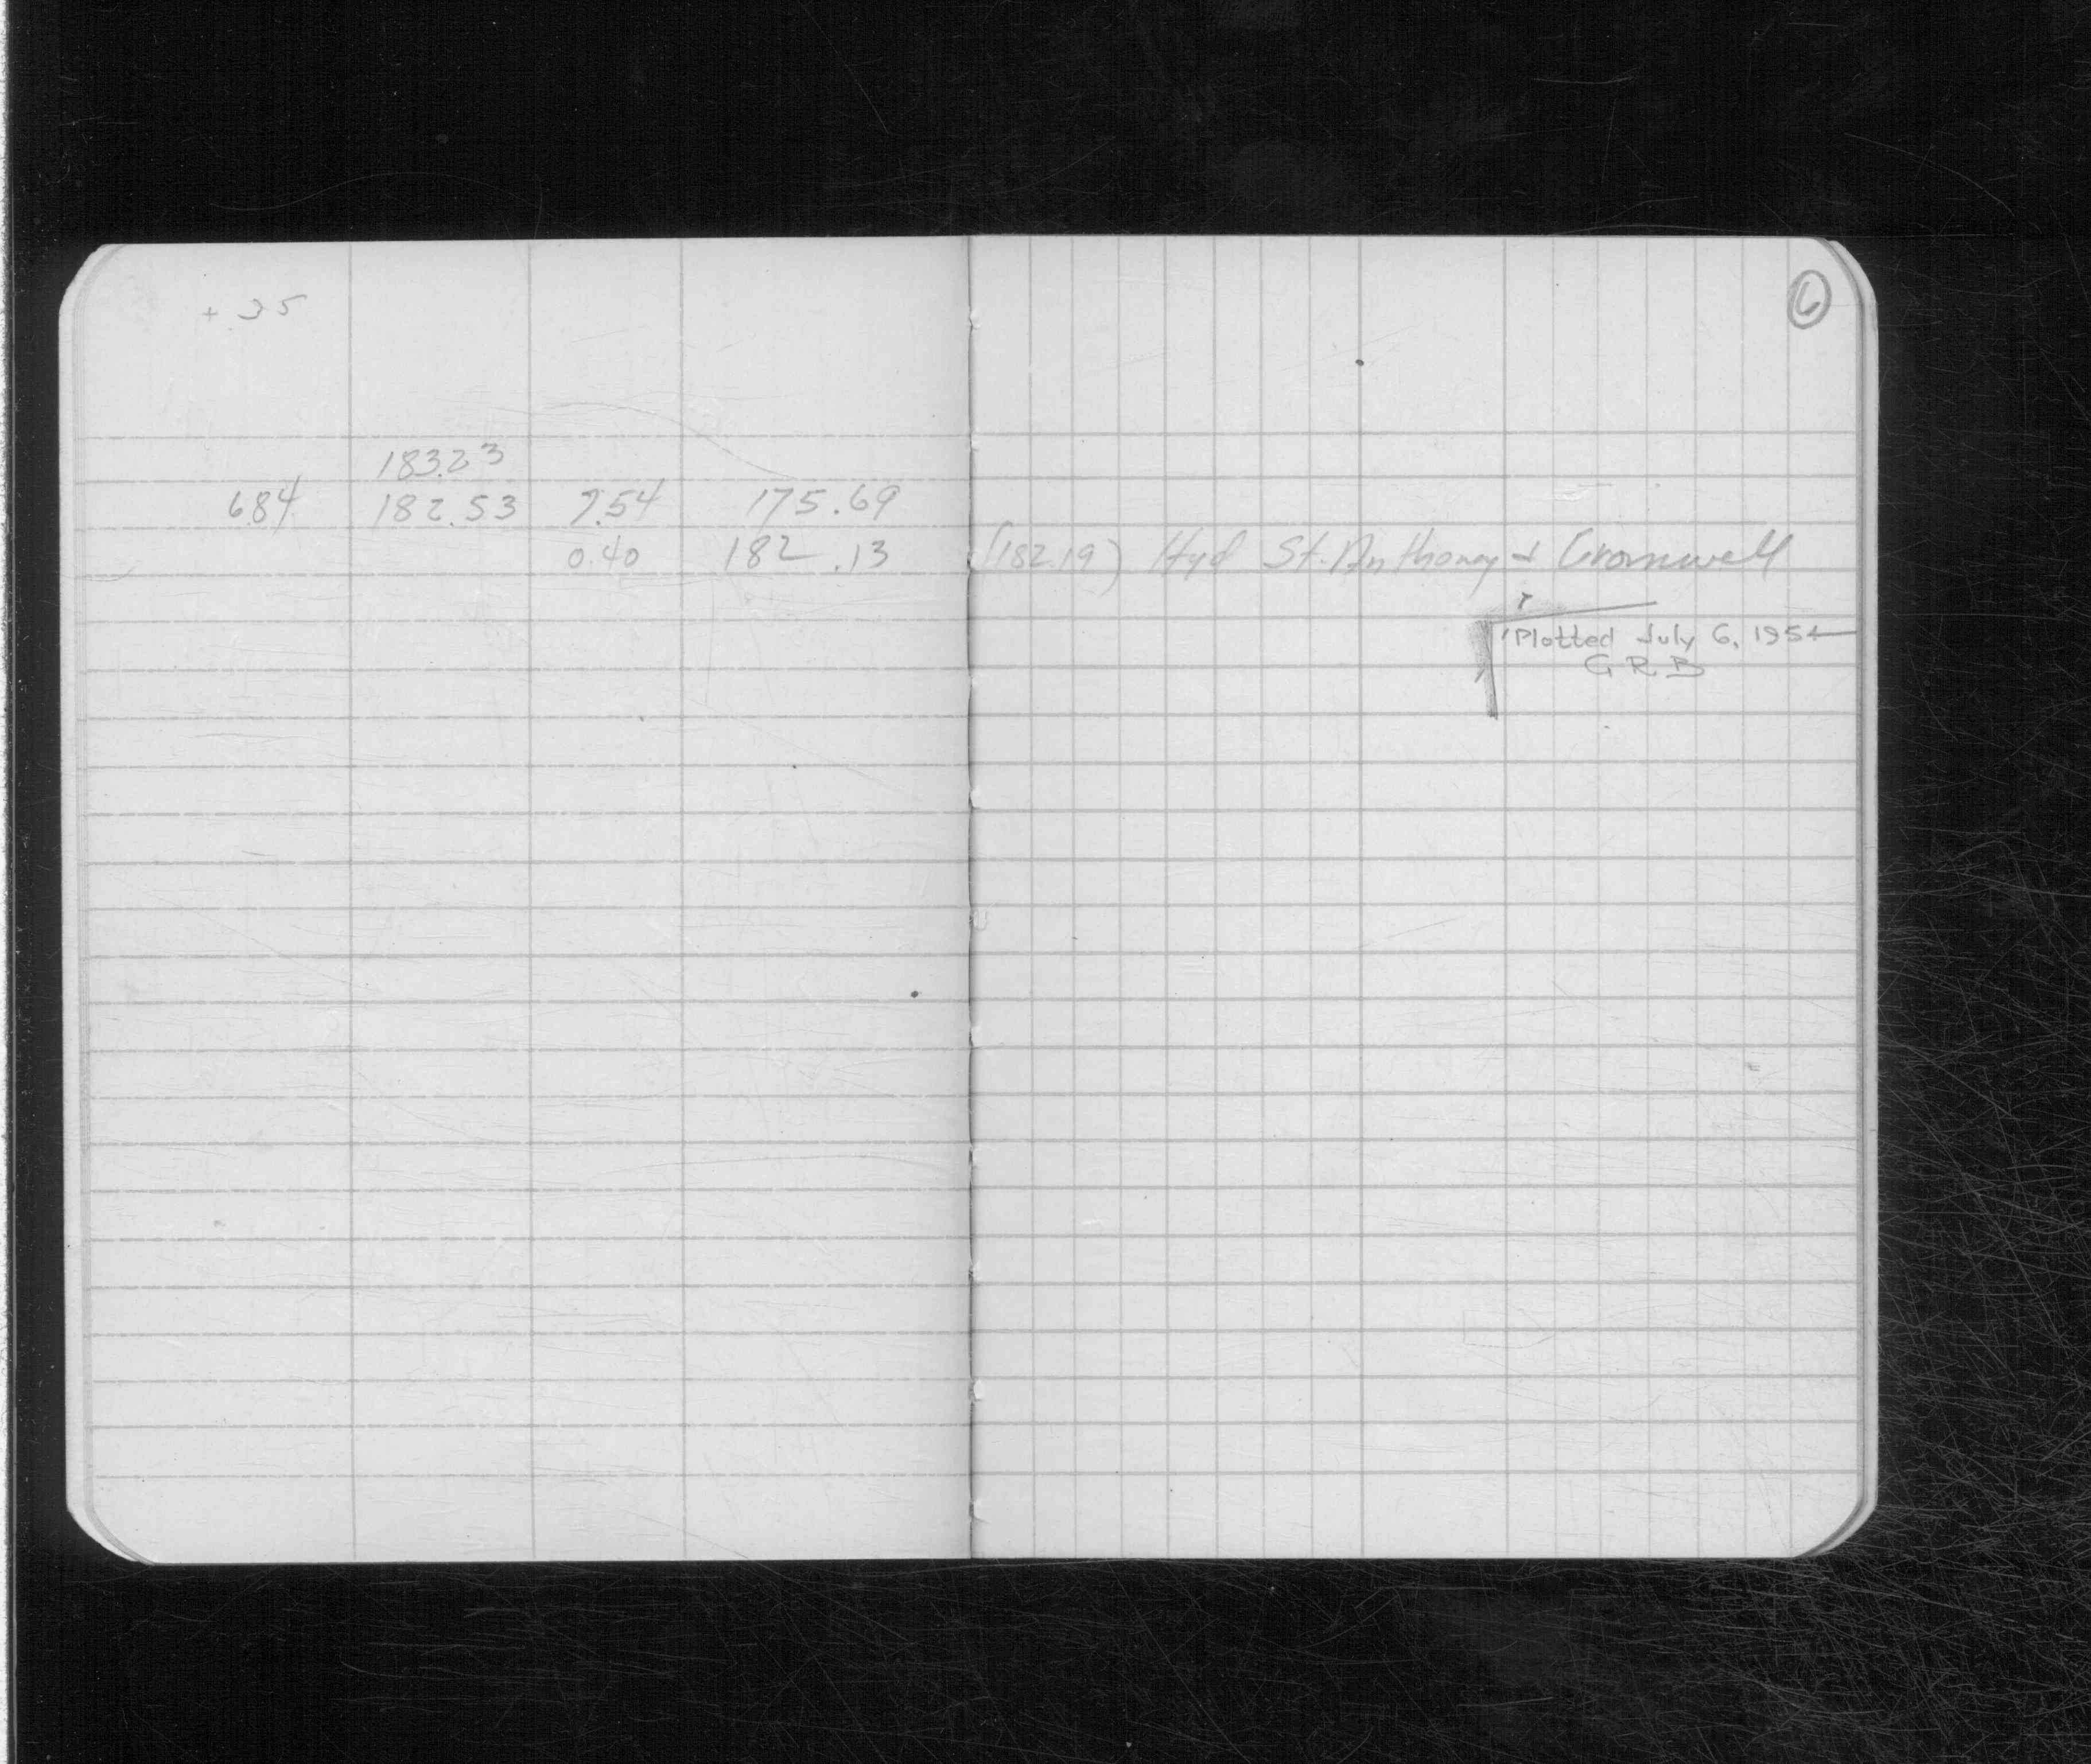 +.35
6
183.23
6.84 182.53 7.54 175.69
0.40 182.13 (182.19) Hyd St. Anthony & Cromwell
Plotted July 6, 1954
G R B